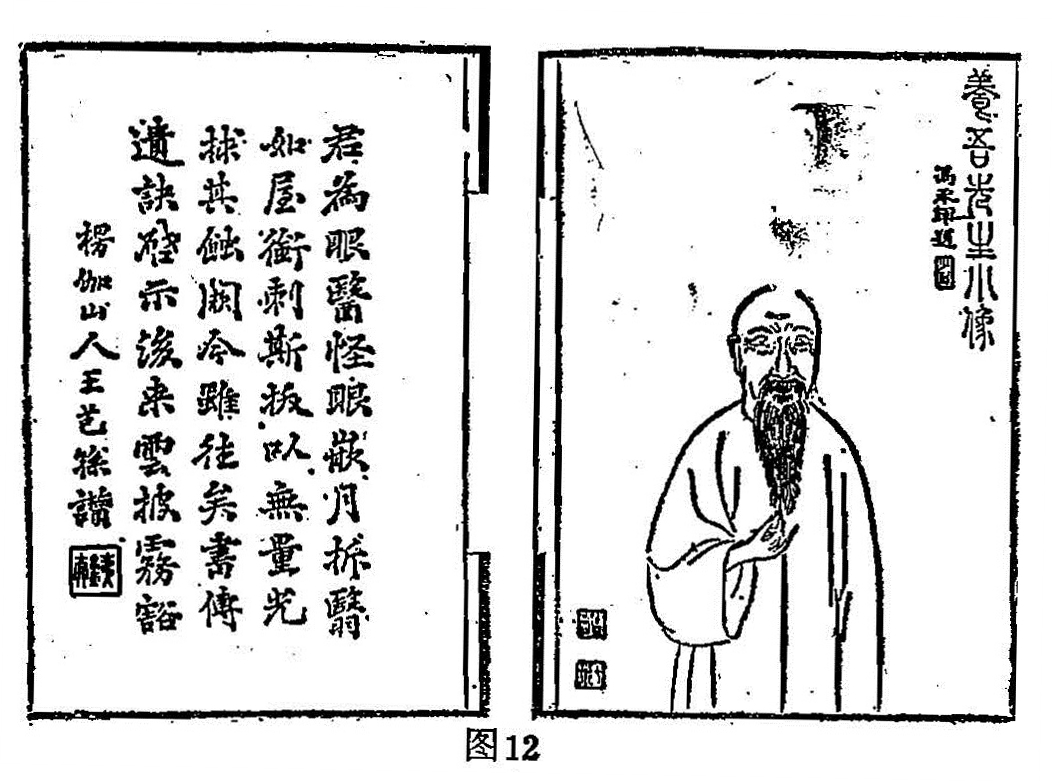 養吾先生小像
馮承輝題
君為眼醫怪眼嵌月拆翳
如屋銜刺斯拔以無量光
捄其蝕闕今雖往矣書傳
遺訣啓示後来雲披霧豁
楞伽山人王芑孫讚
图12